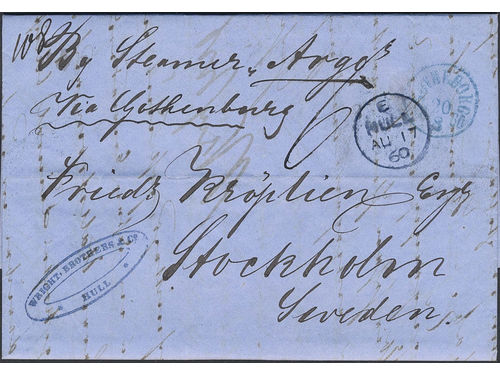 108
By Steamer „Argo“
Via Gothenburg
E
HULL
AU 17
60
Friedr Kröplien Esqr
Stockholm
Sweden.
WRIGHT, BROTHERS & Co
HULL